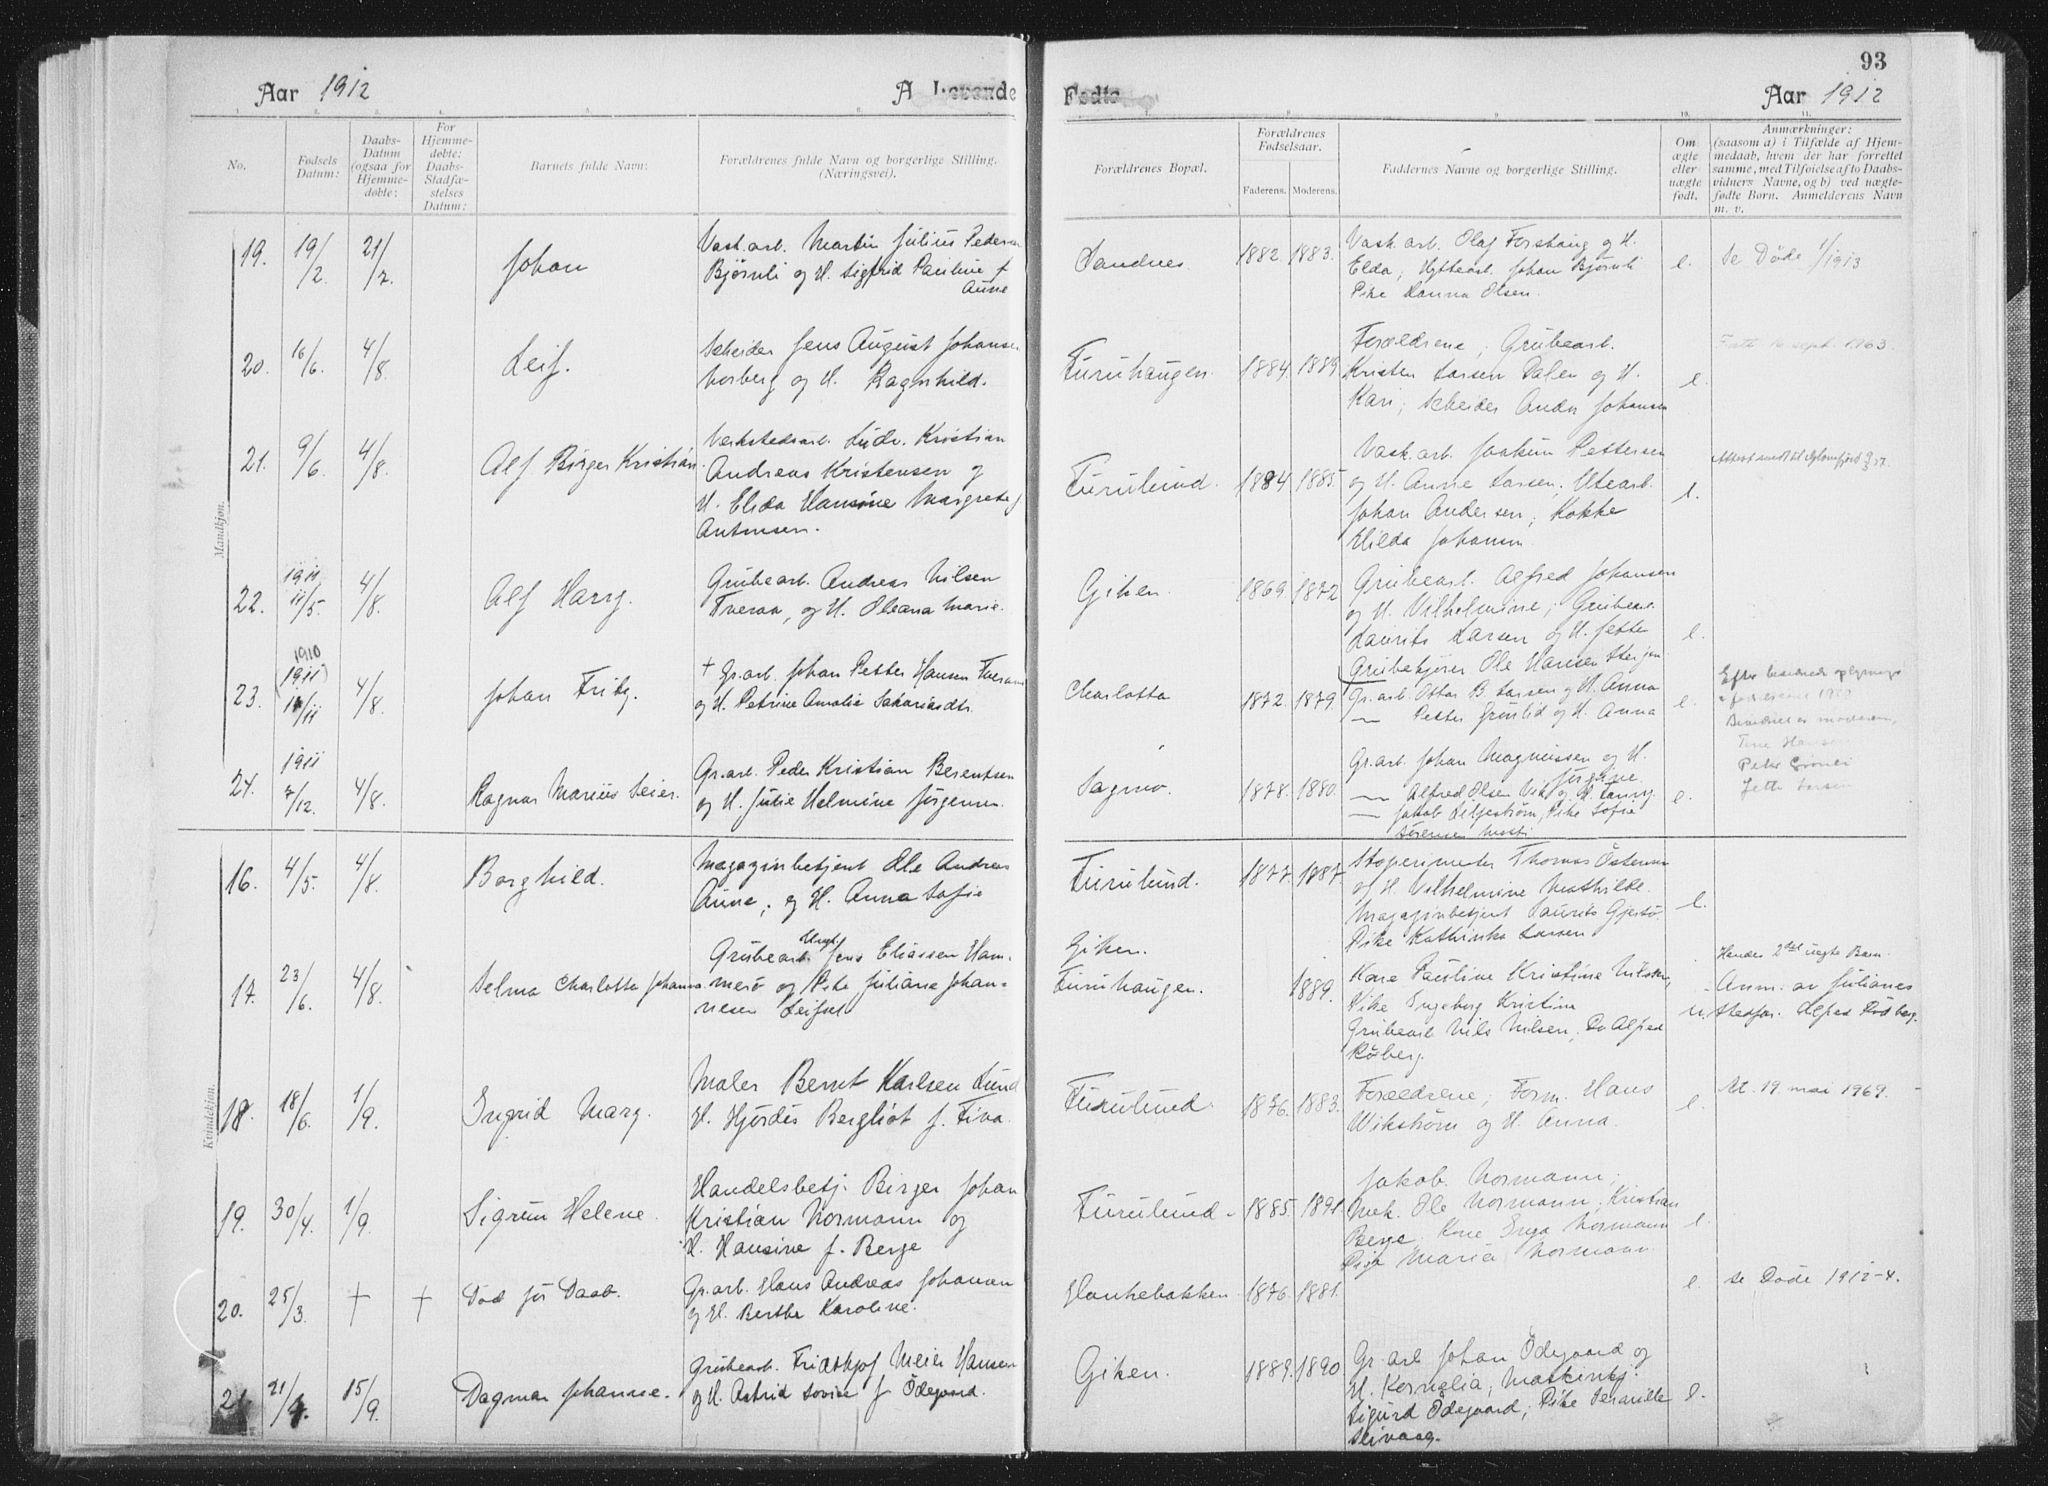 93
Aar 1912
A. Levende Fødte
Aar 1912
No.
Fødsels Datum:
Daabs-Datum (ogsaa for Hjemmedøbte:
For Hjemmedøbte: Daabs-Stadfæstelses Datum:
Barnets fulde Navn:
Forældrenes fulde Navn og borgerlige Stilling. (Næringsvei).
Forældrenes Bopæl.
Forældrenes Fødselsaar.
Faderens. Moderens.
Faddernes Navne og borgerlige Stilling.
Om ægte eller uægte født.
Anmærkninger:
(saasom a) i Tilfælde af Hjem-
medaab, hvem der har forrettet
samme, med Tilføielse af to Daabs-
vidners Navne, og b) ved uægte-
fødte Børn. Anmelderens Navn
m. v.
Mandkjøn.
19. 19/2. 21/7. Johan
Vask.arb. Martin Julius Pedersen
Bjørnli og H. Sigfrid Pauline f
Aune
Sandnes. 1882 1883.
Vask.arb. Olaf Forshaug og H.
Elda; Hyttearb. Johan Bjørnli
Pike Hanna Olsen.
e. Se Døde 1/1913
20. 16/6. 4/8. Leif.
Scheider Jens August Johansen
Norberg og H. Ragnhild.
Furuhaugen. 1884. 1889
Forældrene; Grubearb.
Kristen Larsen Dalen og H.
Kari; Scheider Andr Johansen
e. 16 sept. 1963.
21. 9/6. 4/8. Alf Birger Kristian.
Verkstedsarb. Ludv. Kristian
Andreas Kristensen og
H. Elida Hansine Margrete f
Antonsen.
Furulund. 1884 1885.
Vask.arb. Joakim Pettersen
og H. Anne Larsen; Utearb.
Johan Andersen; Kokke
Hilda Johansen
e.
22. 1911 11/5. 4/8. Alf Harry.
Grubearb. Andreas Nilsen
Tveraa, og H. Oleana Marie.
Giken. 1869. 1872
Grubearb. Alfred Johansen
og H. Vilhelmine; Grubearb.
Laurits Larsen og H. Jette
Grubekjører Ole Hansen
e.
23. 1910 (1911) 11/11 4/8. Johan Fritz.
† Gr.arb. Johan Petter Hansen Tveraa
og H. Petrine Amalie Sakariasdtr.
Charlotta 1872. 1879.
Gr.arb. Ottar B. Larsen og H. Anna
— Petter Grønlid og H. Anna
e.
Efter
fødselsaar 1910
moderen,
Tine Hansen
Peter Grønli
Jette Larsen
24. 1911 7/12. 4/8. Ragnar Marius Seier.
Gr.arb. Peder Kristian Berentsen
og H. Julie Helmine Jørgensen.
Sagmo. 1878. 1880.
Gr.arb. Johan Magnussen og H.
Jørgine.
— Alfred Olsen Vik og H. Fanny
— Jakob Liljestrøm, Pike Sofie
Sørensen
e.
Kvindekjøn.
16. 4/5. 4/8. Borghild.
Magazinbetjent Ole Andreas
Aune; og H. Anna Sofie
Furulund. 1877. 1887.
Thomas Østensen
og H. Vilhelmine Mathilde.
Magazinbetjent Laurits Gjestø.
Pike Kathinka Larsen
e.
17. 23/6. 4/8. Selma Charlotta Johanna.
Ungk.
Grubearb. Jens Eliassen Ham-
merø og Pike Juliane Johan-
nesen Leifset
Giken.
Furuhaugen. 1889.
Kone Pauline Kristine Nilsen,
Pike Ingeborg Kristine
Grubearb. Nils Nilsen, Do Alfred
Rösberg.
u.
Hendes 2det uægte Barn.
Anm. av Julianes
Stedfar. Alfred Rösberg.
18. 18/6. 1/9. Ingrid Mary.
Maler Bernt Karlsen Lund
H. Hjørdis Bergliot f. Fiva.
Furulund. 1876. 1883.
Forældrene; Form. Hans
Wikstrøm og H. Anna.
e. At. 19. mai 1969.
19. 30/4. 1/9. Sigrun Helene.
Handelsbetj. Birger Johan
Kristian Normann og
H. Hansine f. Berge
Furulund. 1885. 1891.
Jakob Normann;
Mek. Ole Normann; Kristian
Berge, Kone Inga Normann
Pige Maria Normann.
e.
20. 25/3. † † Død før Daab.
Gr.arb. Hans Andreas Johansen
og H. Berthe Karoline.
Hankebakken. 1876. 1881.
e. Se Døde 1912-4.
21. 21/4. 15/9. Dagmar Johanne.
Grubearb. Fridthjof Meier Hansen
og H. Astrid Lovise f Ödegaard.
Giken. 1889. 1890
Gr.arb. Johan Ödegaard og
H. Kornelia; Maskinkj.
Sigurd Ödegaard; Pike Pernille
Seivaag.
e.